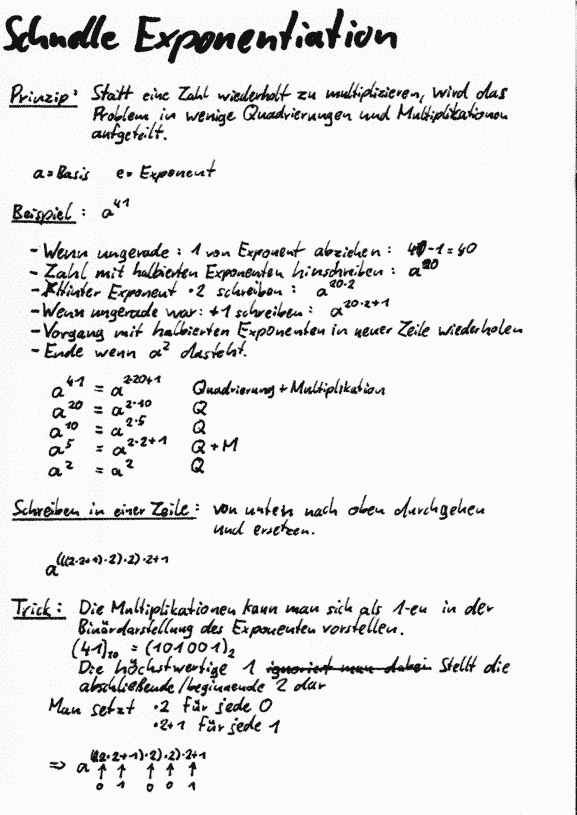 Schnelle Exponentiation
Prinzip: Statt eine Zahl wiederholt zu multiplizieren, wird das
Problem in wenige Quadrierungen und Multiplikationen
aufgeteilt.
a=Basis e=Exponent
Beispiel: a^41
- Wenn ungerade: 1 von Exponent abziehen: 41-1=40
- Zahl mit halbierten Exponenten hinschreiben: a^20
- Hinter Exponent ·2 schreiben: a^20·2
- Wenn ungerade war: +1 schreiben: a^20·2+1
- Vorgang mit halbierten Exponenten in neuer Zeile wiederholen
- Ende wenn a^2 dasteht.
a^41 = a^2·20+1 Quadrierung + Multiplikation
a^20 = a^2·10 Q
a^10 = a^2·5 Q
a^5 = a^2·2+1 Q+M
a^2 = a^2 Q
Schreiben in einer Zeile: von unten nach oben durchgehen
und ersetzen.
a^(((2·2+1)·2)·2)·2+1
Trick: Die Multiplikationen kann man sich als 1-en in der
Binärdarstellung des Exponenten vorstellen.
(41)10 = (101001)2
Die höchstwertige 1 ignoriert man dabei stellt die
abschließende/beginnende 2 dar
Man setzt ·2 für jede 0
·2+1 für jede 1
⇒ a^(((2·2+1)·2)·2)·2+1
↑ ↑ ↑ ↑ ↑
0 1 0 0 1